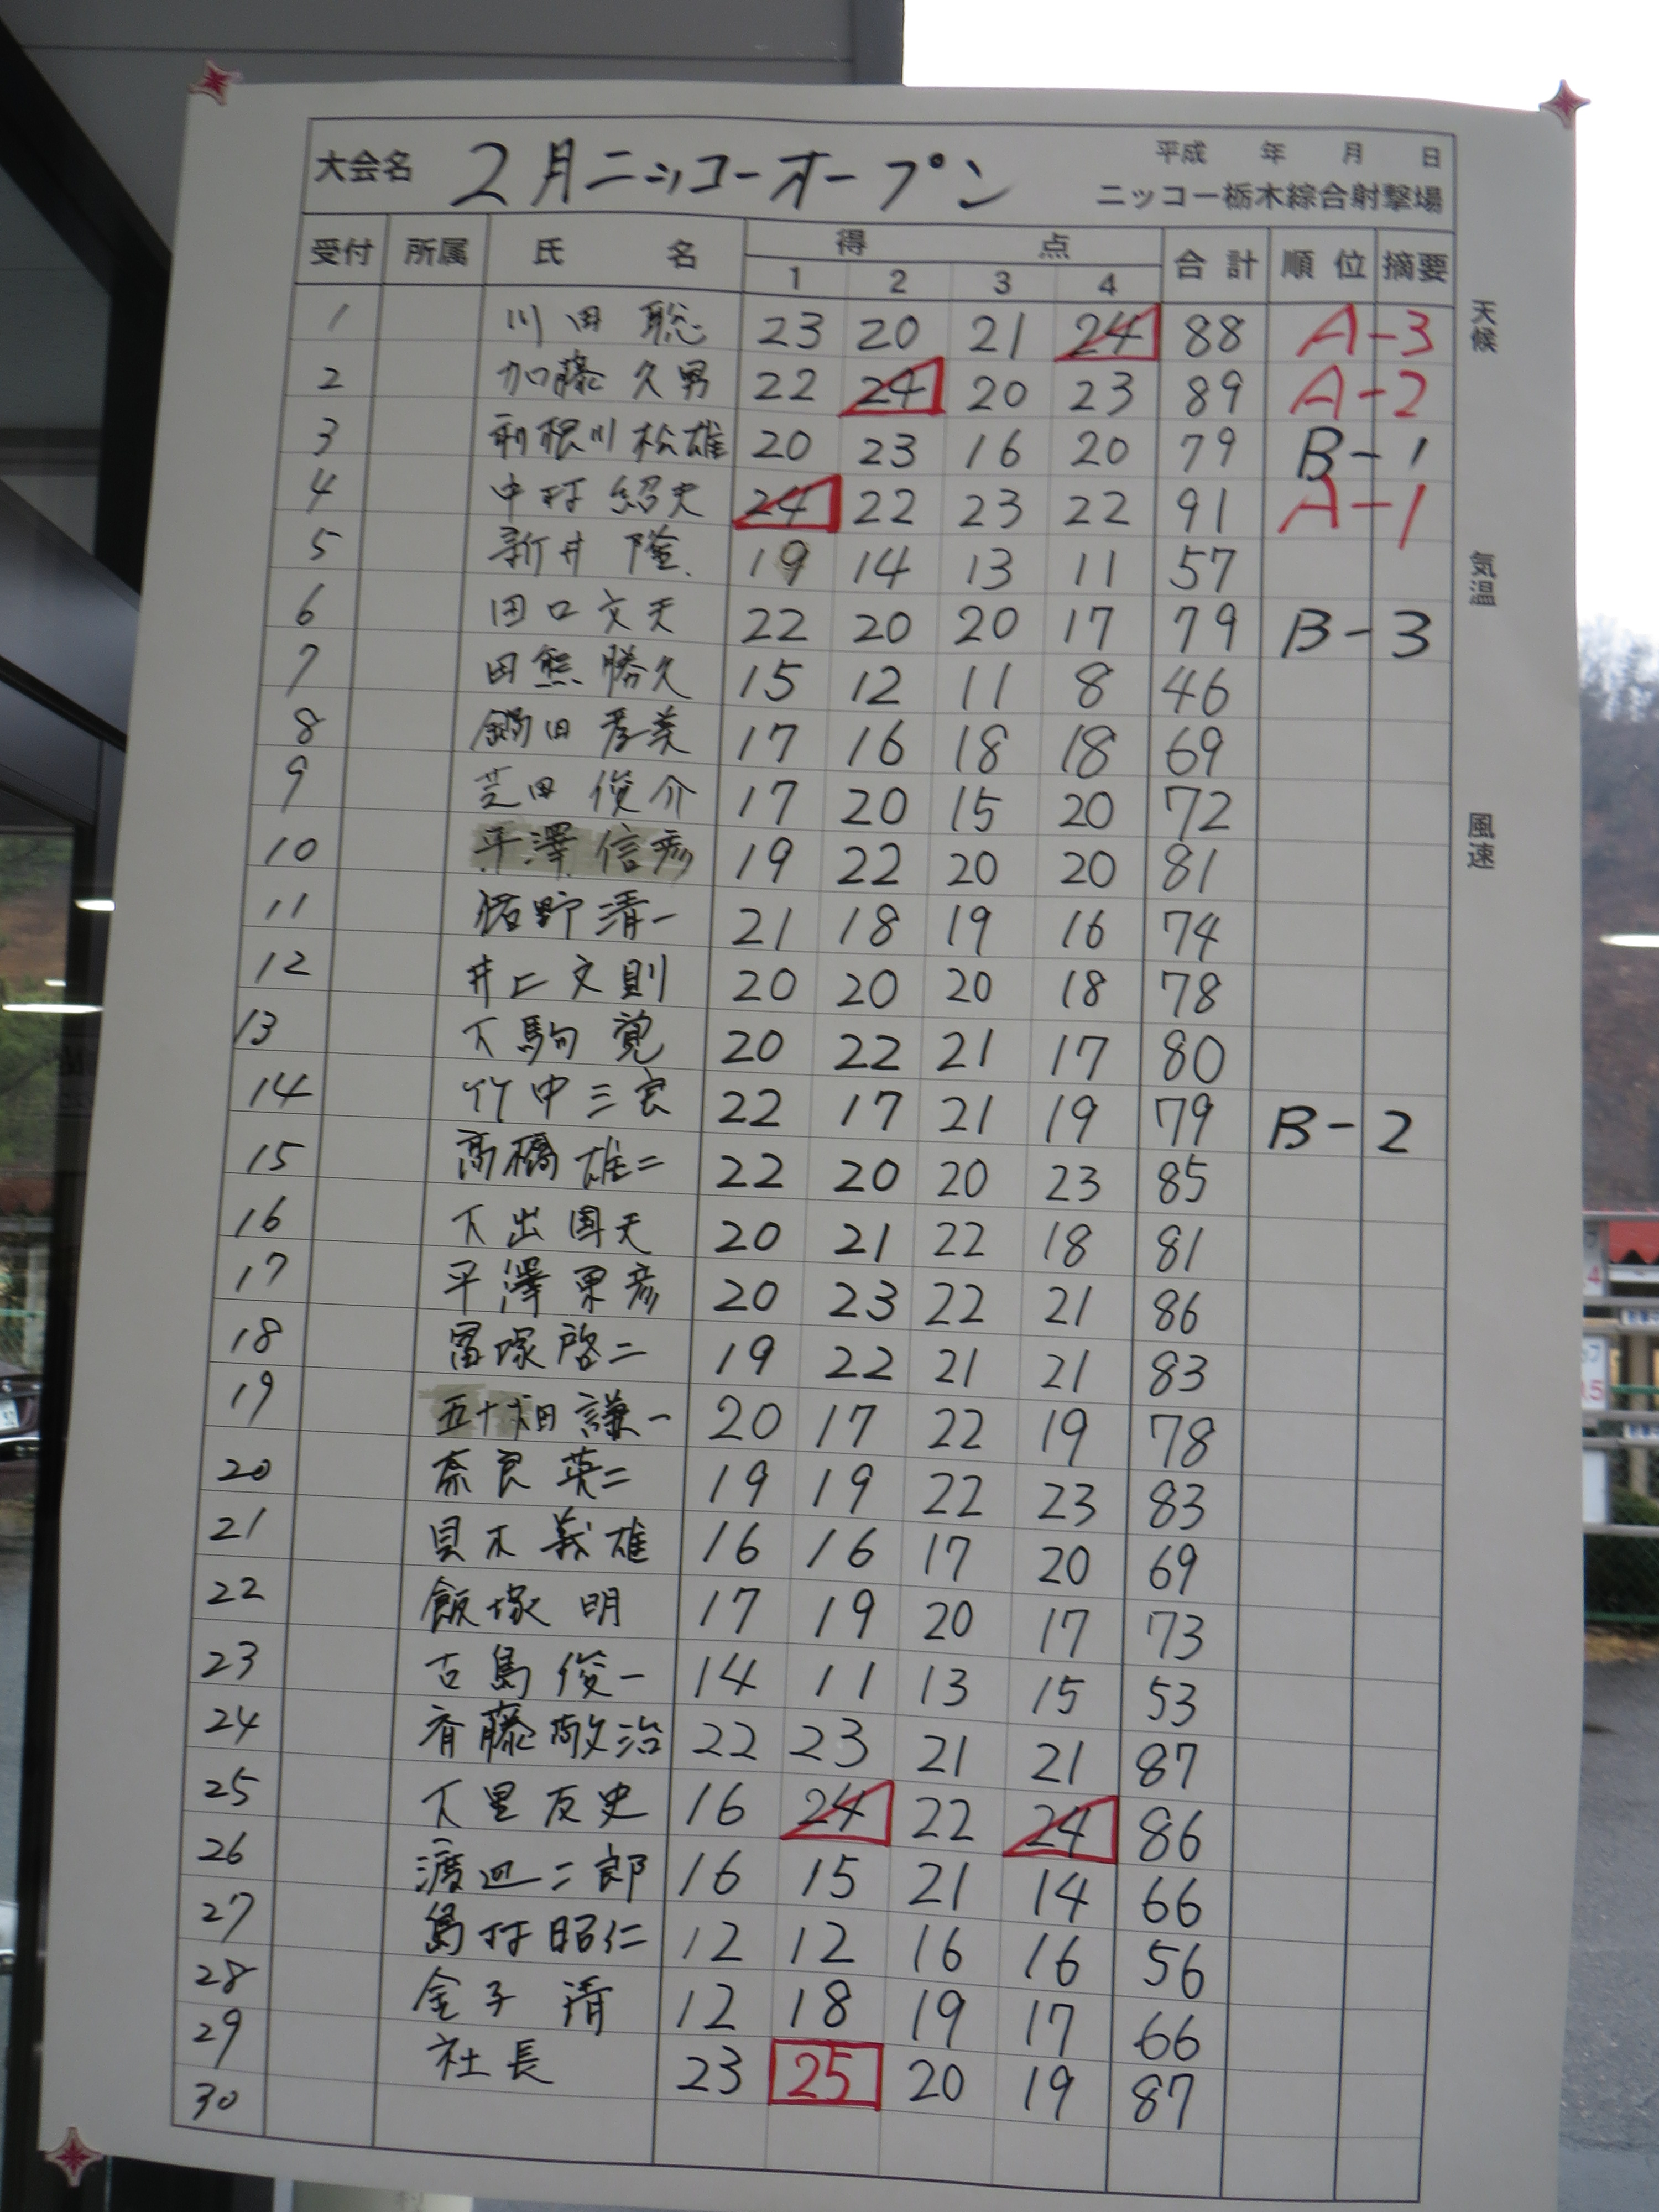 大会名 2月ニッコーオープン 平成 年 月 日
ニッコー栃木綜合射撃場
受付 所属 氏 名 得 点 合計 順位 摘要
1 2 3 4
1 川田 聡 23 20 21 24 88 A-3
2 加藤 久男 22 24 20 23 89 A-2
3 利根川 松雄 20 23 16 20 79 B-1
4 中村 紹史 24 22 23 22 91 A-1
5 新井 隆 19 14 13 11 57
6 田口 文夫 22 20 20 17 79 B-3
7 田熊 勝久 15 12 11 8 46
8 鍋田 孝美 17 16 18 18 69
9 芝田 俊介 17 20 15 20 72
10 平澤 信彦 19 22 20 20 81
11 猪野 清一 21 18 19 16 74
12 井上 文則 20 20 20 18 78
13 下駒 覚 20 22 21 17 80
14 竹中 三良 22 17 21 19 79 B-2
15 高橋 雄二 22 20 20 23 85
16 下出 国夫 20 21 22 18 81
17 平澤 東彦 20 23 22 21 86
18 冨塚 啓二 19 22 21 21 83
19 五十畑 謙一 20 17 22 19 78
20 奈良 英二 19 19 22 23 83
21 貝木 義雄 16 16 17 20 69
22 飯塚 明 17 19 20 17 73
23 古島 俊一 14 11 13 15 53
24 斉藤 敬治 22 23 21 21 87
25 下里 友史 16 24 22 24 86
26 渡辺 二郎 16 15 21 14 66
27 島村 昭仁 12 12 16 16 56
28 金子 清 12 18 19 17 66
29 社長 23 25 20 19 87
30
天候
気温
風速